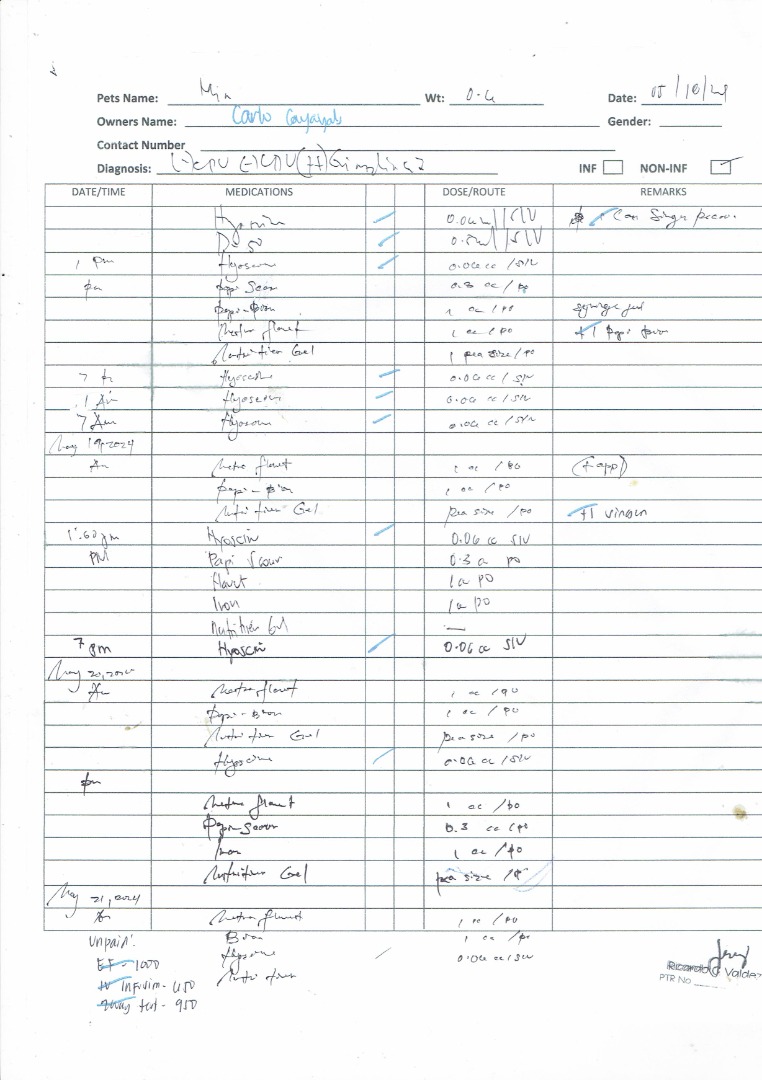 Pets Name: Wt: Date:
Owners Name: Carlo Gender:
Contact Number
Diagnosis: (-) CPV (-) CDV (++) INF NON-INF
DATE/TIME MEDICATIONS DOSE/ROUTE REMARKS
Hyoscin
D-50
1 pm Hyoscin 0.06 cc / SIV
pm Papi Scour 0.3 cc / po
Papi-Iron 1 cc / po syringe
Metro flavet 1 cc / po +1 Papi Iron
Nutritien Gel 1 pea size / po
Hyoscin 0.06 cc / SIV
1 AM Hyoscin 0.06 cc / SIV
7 AM Hyoscin 0.06 cc / SIV
May 19, 2024
Am Metro flavet 1 cc / po
Papi-Iron 1 cc / po
Nutritien Gel pea size / po +1
Hyoscin 0.06 cc SIV
PM Papi Scour 0.3 cc po
Flavet 1 cc po
Iron 1 cc po
Nutritien Gel —
7 pm Hyoscin 0.06 cc SIV
May 20, 2024
Am Metro flavet 1 cc / po
Papi-Iron 1 cc / po
Nutritien Gel pea size / po
Hyoscine 0.06 cc / SIV
pm
Metro flavet 1 cc / po
Papi-Scour 0.3 cc / po
Iron 1 cc / po
Nutritien Gel pea size /
May 21, 2024
Am Metro flavet 1 cc / po
Iron 1 cc / po
Unpaid:
Hyoscine 0.06 cc / SIV
EF - 1000
Nutritien
IV Infusion - 450
test - 950
Ricardo G Valdez
PTR No